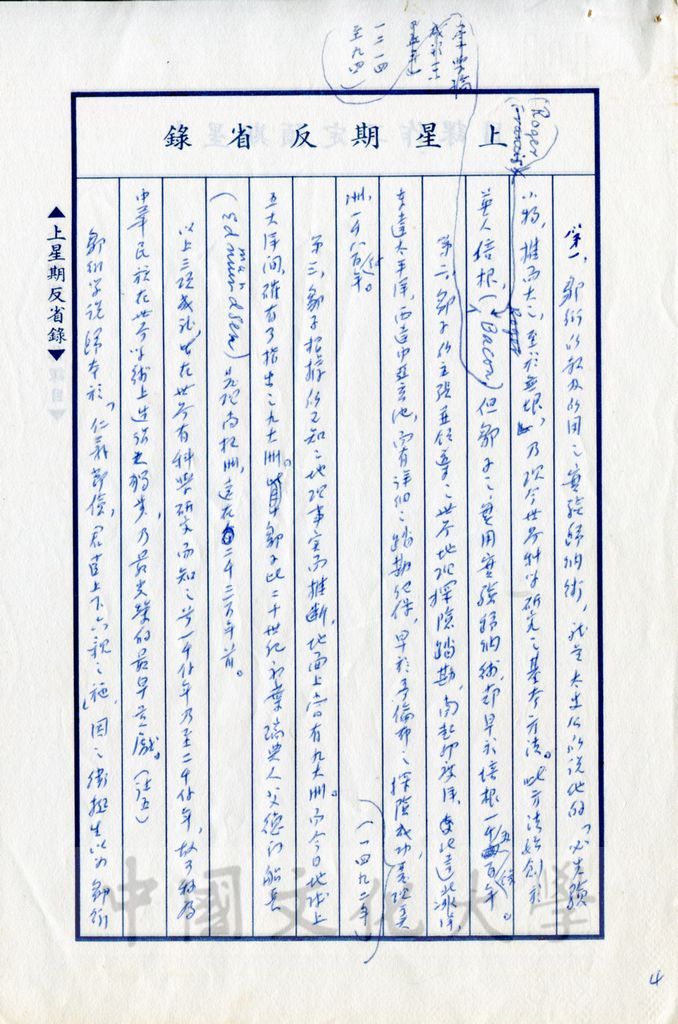 錄省反期星上
李學稿
一二一四
至九四
(Roger
Francis
第一、鄒衍的敘及所用之實驗歸納術,就是太史公所說他的「必先驗
小物,推而大之,至於無垠」,乃現今世界科學研究之基本方法。此方法始創於
英人培根,(Bacon)但鄒子之應用實驗歸納術,卻早於培根一千五百餘年。
Roger
第二、鄒子的主張並領導之世界地理探險踏勘,南起印度洋,東北達北冰洋,
東達太平洋,西達中亞亞洲,而有詳細之踏勘紀錄,早於哥倫布之探險成功發現美
洲,一千八百餘年。
(一四九二年)
第三、鄒子根據所已知之地理事實而推斷,地面上當有九大洲而今日地球上
五大洋間,確有了指出之九大洲。鄒子比二十世紀初葉瑞典人父德門船長
(Edmundsen)
man
發現南極洲,遠在二千三百年前。
以上三項成就,皆在世界有科學研究而知之前一千餘年乃至二千餘年,故可稱為
中華民族在世界學術上進程之獨步,乃最光榮的最早貢獻。(註五)
鄒衍學說歸本於「仁義節儉,君臣上下六親之施」,因之衛挺生以為鄒衍
▲上星期反省錄▼
中國文化大學
4